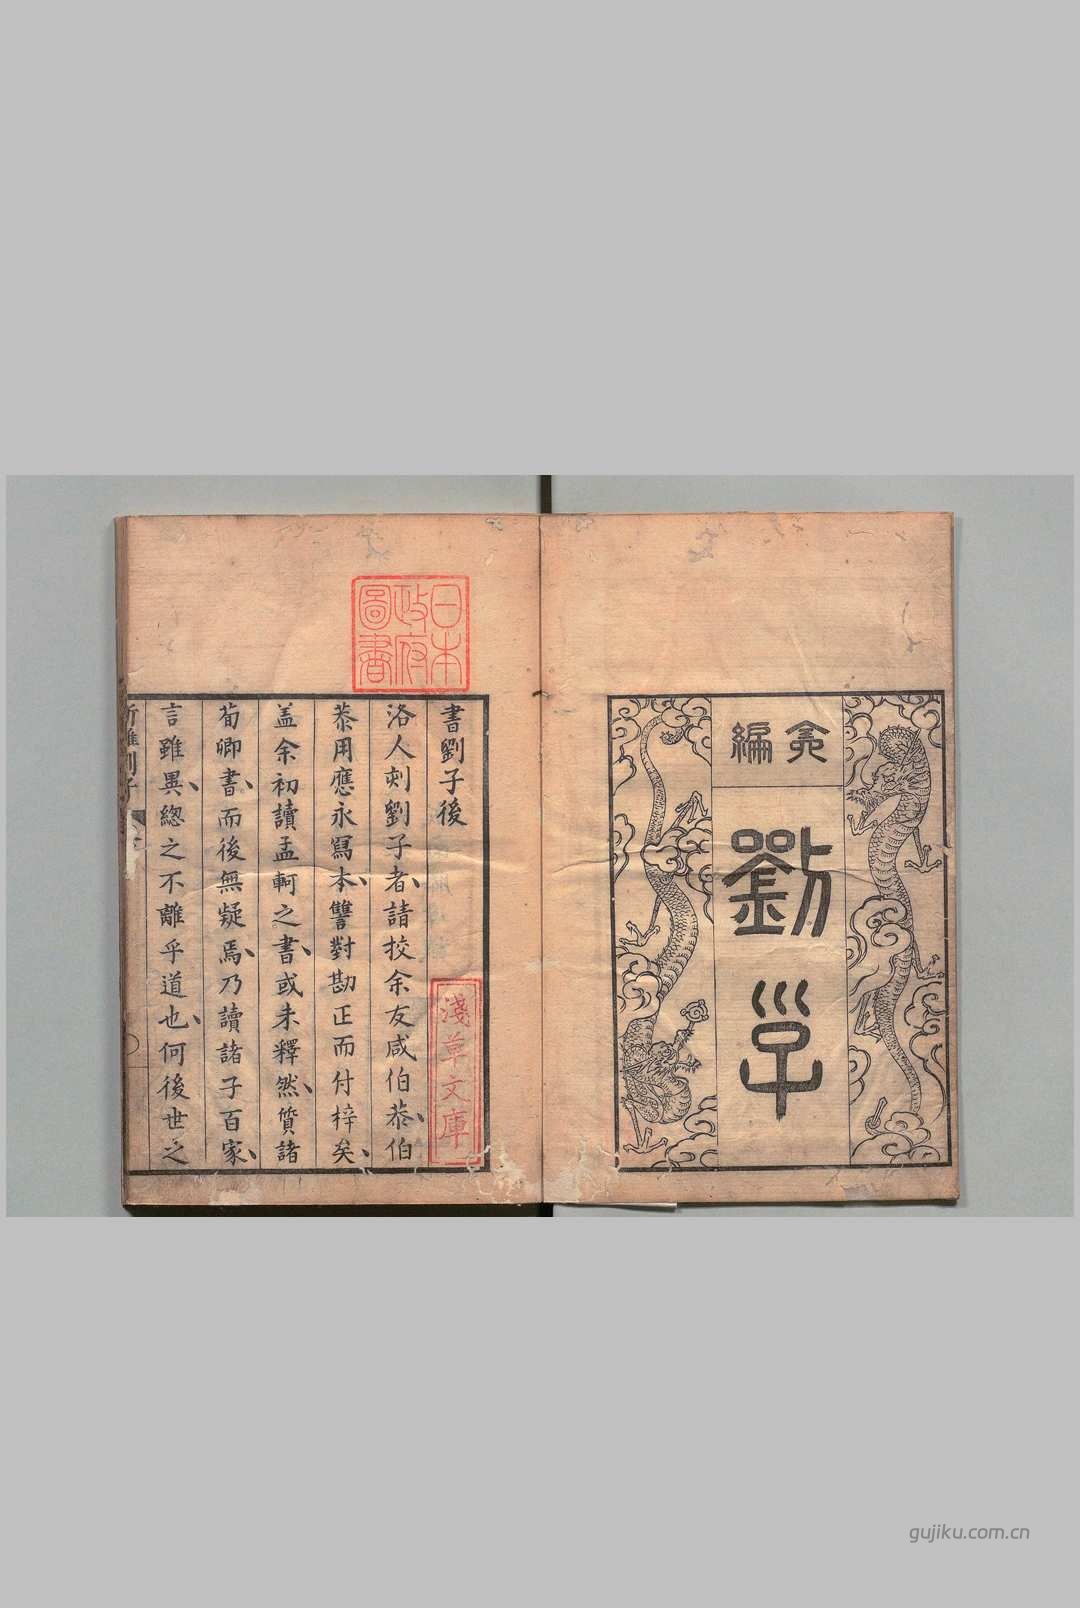 編
劉子
日本
政府
圖書
書劉子後
淺草文庫
洛人刻劉子者請挍余友咸伯恭伯
恭用應永寫本讐對勘正而付梓矣
盖余初讀孟軻之書或未釋然質諸
荀卿書而後無疑焉乃讀諸子百家
言雖異緫之不離乎道也何後世之
新雕劉子
gujiku.com.cn